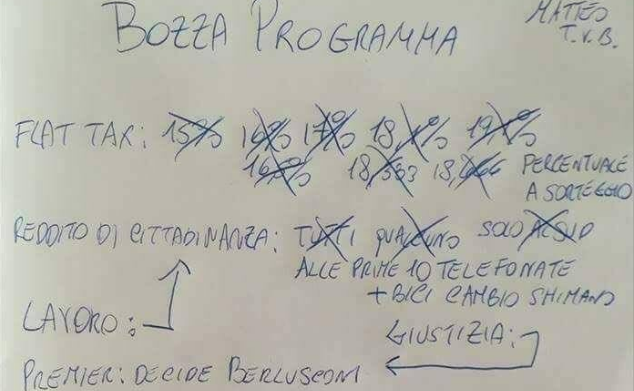 BOZZA PROGRAMMA
MATTEO
T.V.B.
FLAT TAX: 15% 16% 17% 18,1% 19,1%
16,5% 18,333 18,666 PERCENTUALE
A SORTEGGIO
REDDITO DI CITTADINANZA: TUTTI QUALCUNO SOLO AL SUD
ALLE PRIME 10 TELEFONATE
+ BICI CAMBIO SHIMANO
LAVORO:
GIUSTIZIA:
PREMIER: DECIDE BERLUSCONI